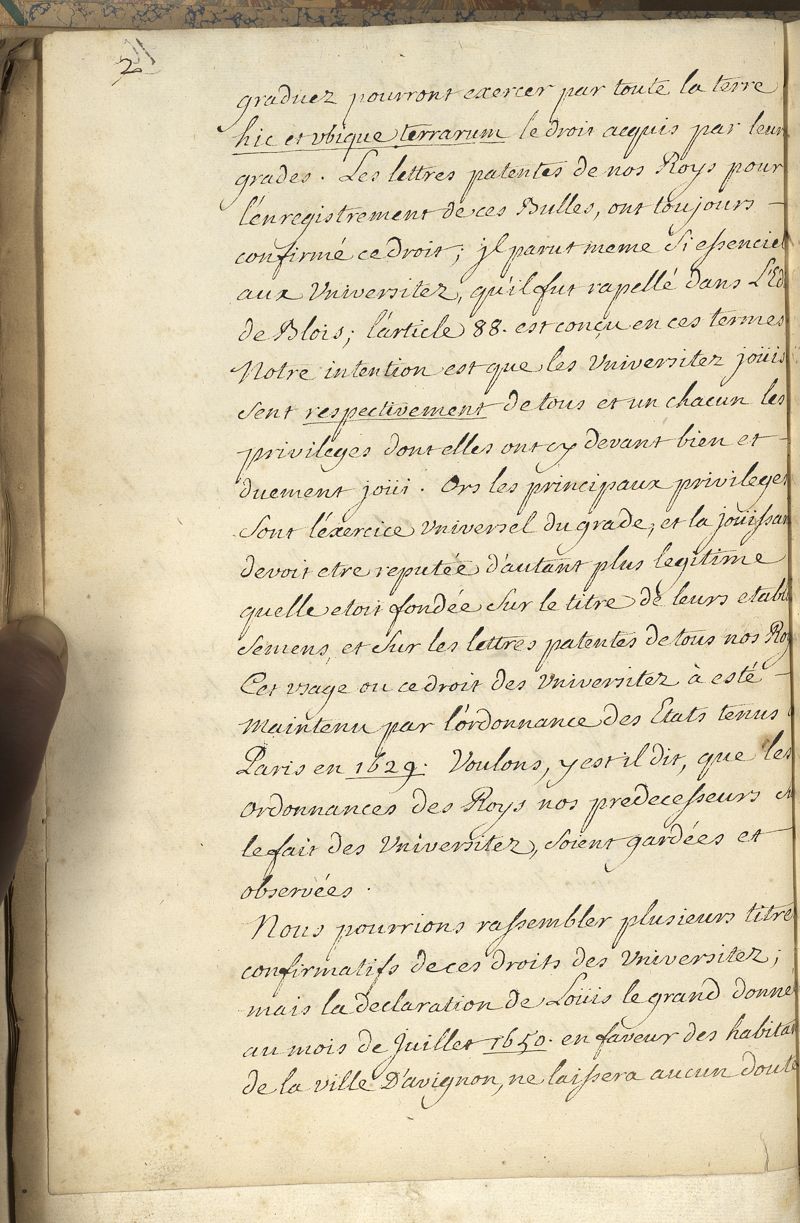 2
graduez pourront exercer par toute la terre
hic et vbique terrarum le droit acquis par leurs
grades. Les lettres patentes de nos Roys pour
l'énregistrement de ces Bulles, ont toujours -
confirmé ce droit; jl parut meme si essenciel
aux Vniversitez, qu'il fut rapellé dans L'Ed
de Blois; l'árticle 88. est conçu en ces termes
Notre intention est que les Vniversitez joüis
sent respectivement de tous et un chacun les
privileges dont elles ont cy devant bien et -
duement joüi. Ors les principaux privileges
sont l'éxercice Vniversel du grade, et la joüissan
devoit etre reputée d'autant plus legitime
quelle etoit fondée sur le titre de leurs etabli
semens, et sur les lettres patentes de tous nos Roy
Cet vsage ou ce droit des Vniversitez à esté -
Maintenu par l'órdonnance des Etats tenus
Paris en 1629. Voulons, y est il dit, que les
ordonnances des Roys nos predecesseurs
le fait des Vniversitez, soient gardées et
observées.
Nous pourrions rassembler plusieurs titre
confirmatifs de ces droits des Vniversitez;
mais la declaration de Loüis le grand donné
au mois de Juillet 1650. en faveur des habitan
de la ville D'avignon, ne laissera aucun doute